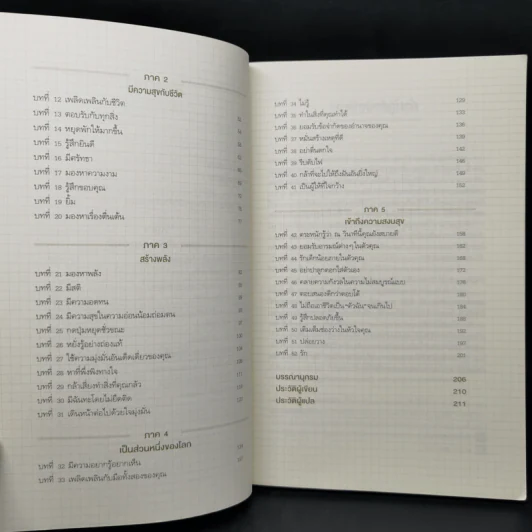 ภาค 2
มีความสุขกับชีวิต
บทที่ 12 เพลิดเพลินกับชีวิต
บทที่ 13 ตอบรับกับทุกสิ่ง
บทที่ 14 หยุดพักให้มากขึ้น
บทที่ 15 รู้สึกยินดี
บทที่ 16 มีศรัทธา
บทที่ 17 มองหาความงาม
บทที่ 18 รู้สึกขอบคุณ
บทที่ 19 ยิ้ม
บทที่ 20 มองหาเรื่องตื่นเต้น
ภาค 3
สร้างพลัง
บทที่ 21 มองหาพลัง
บทที่ 22 มีสติ
บทที่ 23 มีความอดทน
บทที่ 24 มีความสุขในความอ่อนน้อมถ่อมตน
บทที่ 25 กดปุ่มหยุดชั่วขณะ
บทที่ 26 หยั่งรู้อย่างถ่องแท้
บทที่ 27 ใช้ความมุ่งมั่นอันเด็ดเดี่ยวของคุณ
บทที่ 28 หาที่พึ่งพิงทางใจ
บทที่ 29 กล้าเสี่ยงทำสิ่งที่คุณกลัว
บทที่ 30 มีฉันทะโดยไม่ยึดติด
บทที่ 31 เดินหน้าต่อไปด้วยใจมุ่งมั่น
ภาค 4
เป็นส่วนหนึ่งของโลก
บทที่ 32 มีความอยากรู้อยากเห็น
บทที่ 33 เพลิดเพลินกับมือทั้งสองของคุณ
บทที่ 34 ไม่รู้ 129
บทที่ 35 ทำในสิ่งที่คุณทำได้
บทที่ 36 ยอมรับข้อจำกัดของอำนาจของคุณ
บทที่ 37 หมั่นสร้างเหตุที่ดี
บทที่ 38 อย่าตื่นตกใจ
บทที่ 39 รีบดับไฟ
บทที่ 40 กล้าที่จะไปให้ถึงฝันอันยิ่งใหญ่
บทที่ 41 เป็นผู้ให้ที่ใจกว้าง 152
ภาค 5
เข้าถึงความสงบสุข
บทที่ 42 ตระหนักรู้ว่า ณ วินาทีนี้คุณยังสบายดี
บทที่ 43 ยอมรับอารมณ์ต่างๆ ในตัวคุณ
บทที่ 44 รักเด็กน้อยภายในตัวคุณ
บทที่ 45 อย่าปาลูกดอกใส่ตัวเอง
บทที่ 46 คลายความกังวลในความไม่สมบูรณ์แบบ
บทที่ 47 ตอบสนองดีกว่าตอบโต้
บทที่ 48 ไม่ถือเอาชีวิตเป็น "ตัวฉัน" จนเกินไป
บทที่ 49 รู้สึกปลอดภัยขึ้น
บทที่ 50 เติมเต็มช่องว่างในตัวใจคุณ
บทที่ 51 ปล่อยวาง
บทที่ 52 รัก
บรรณานุกรม 206
ประวัติผู้เขียน 210
ประวัติผู้แปล 211